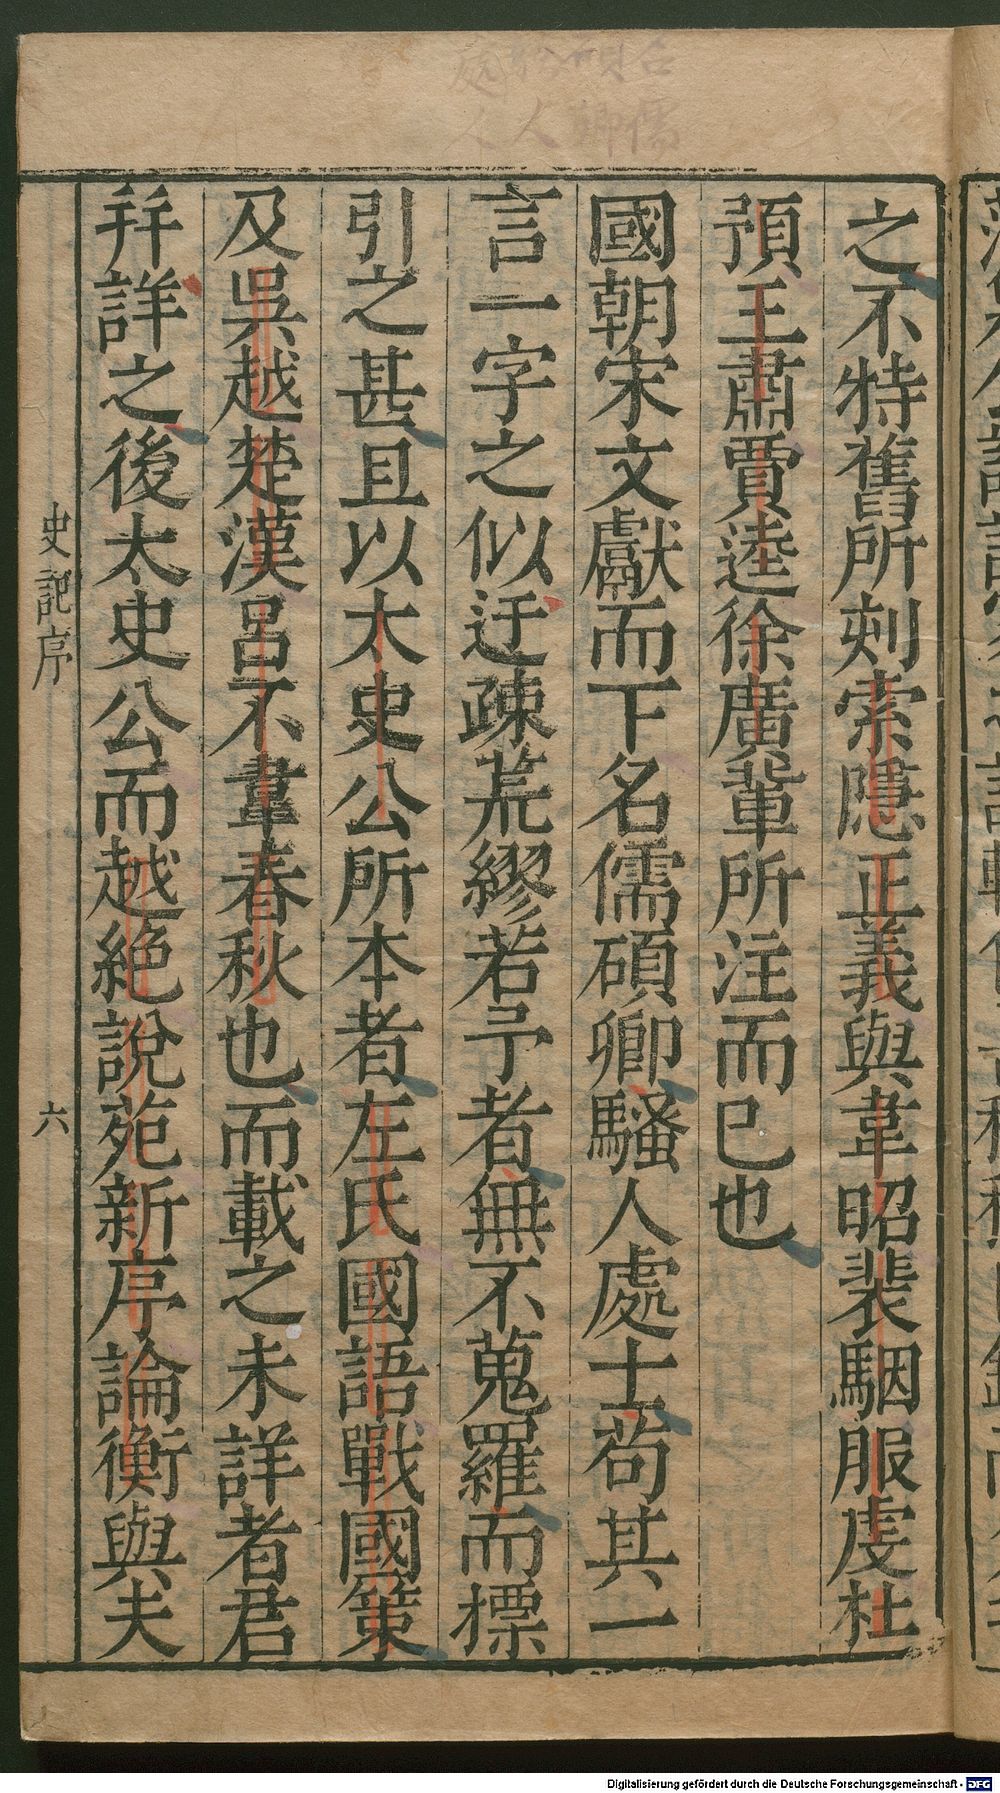 名碩鄉處
儒卿人人
之不特舊所刻索隱正義與韋昭裴駰服虔杜
預王肅賈逵徐廣輩所注而已也
國朝宋文獻而下名儒碩卿騷人處士苟其一
言一字之似迂疎荒繆若予者無不蒐羅而摽
引之甚且以太史公所本者左氏國語戰國策
及吳越楚漢呂不韋春秋也而載之未詳者君
并詳之後太史公而越絕說苑新序論衡與夫
史記序
六
Digitalisierung gefördert durch die Deutsche Forschungsgemeinschaft - DFG